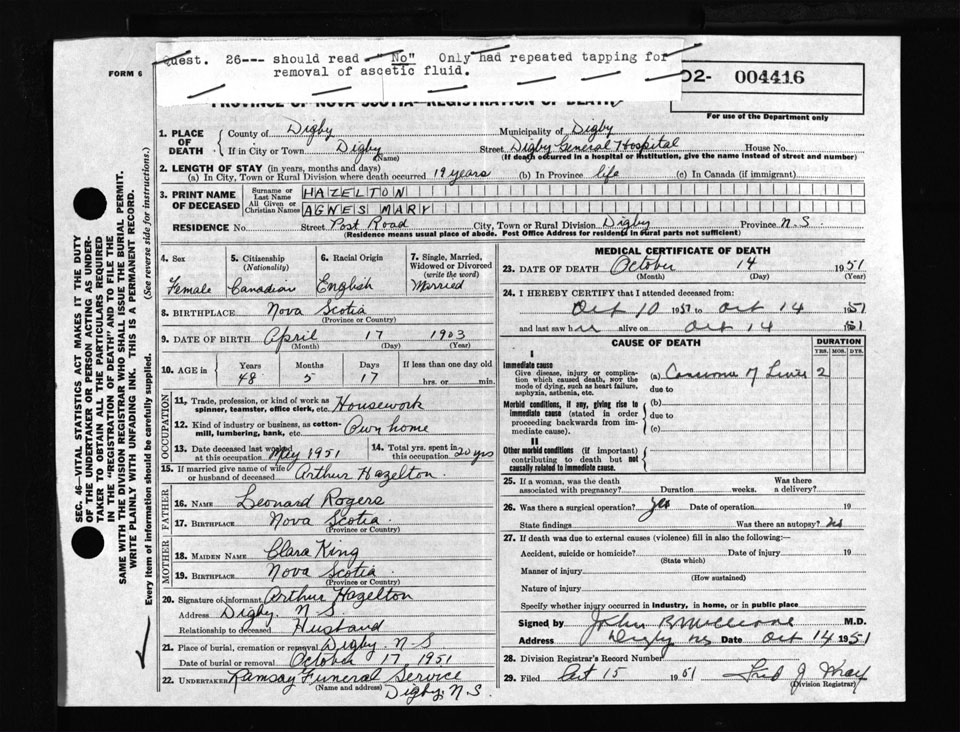 FORM 6
Quest. 26--- should read "No" Only had repeated tapping for
removal of ascetic fluid.
02- 004416
For use of the Department only
PROVINCE OF NOVA SCOTIA—REGISTRATION OF DEATH
1. PLACE OF DEATH
County of Digby Municipality of Digby
If in City or Town Digby (Name) Street Digby General Hospital House No.
(If death occurred in a hospital or institution, give the name instead of street and number)
2. LENGTH OF STAY (in years, months and days)
(a) In City, Town or Rural Division where death occurred 19 years (b) In Province life (c) In Canada (if immigrant)
3. PRINT NAME OF DECEASED
Surname or Last Name HAZELTON
All Given or Christian Names AGNES MARY
RESIDENCE No. Street Post Road City, Town or Rural Division Digby Province N.S.
(Residence means usual place of abode. Post Office Address for residents in rural parts not sufficient)
4. Sex Female
5. Citizenship (Nationality) Canadian
6. Racial Origin English
7. Single, Married, Widowed or Divorced (write the word) Married
8. BIRTHPLACE Nova Scotia
(Province or Country)
9. DATE OF BIRTH April 17 1903
(Month) (Day) (Year)
10. AGE in Years 48 Months 5 Days 17 If less than one day old hrs. or min.
OCCUPATION
11. Trade, profession, or kind of work as spinner, teamster, office clerk, etc. Housework
12. Kind of industry or business, as cotton-mill, lumbering, bank, etc. Own home
13. Date deceased last worked at this occupation May 1951
14. Total yrs. spent in this occupation 20 yrs
15. If married give name of wife or husband of deceased Arthur Hazelton
FATHER
16. NAME Leonard Rogers
17. BIRTHPLACE Nova Scotia
(Province or Country)
MOTHER
18. MAIDEN NAME Clara King
19. BIRTHPLACE Nova Scotia
(Province or Country)
20. Signature of informant Arthur Hazelton
Address Digby, N.S.
Relationship to deceased Husband
21. Place of burial, cremation or removal Digby. N-S
Date of burial or removal October 17 1951
22. UNDERTAKER Ramsay Funeral Service
(Name and address) Digby, N.S.
MEDICAL CERTIFICATE OF DEATH
23. DATE OF DEATH October 14 1951
(Month) (Day) (Year)
24. I HEREBY CERTIFY that I attended deceased from:
Oct 10 1951 to Oct 14 1951
and last saw her alive on Oct 14 1951
CAUSE OF DEATH
DURATION
YRS. MOS. DYS.
I
Immediate cause
Give disease, injury or complication which caused death, NOT the mode of dying, such as heart failure, asphyxia, asthenia, etc.
(a) Carcinoma of Liver 2
due to
Morbid conditions, if any, giving rise to immediate cause (stated in order proceeding backwards from immediate cause).
(b)
due to
(c)
II
Other morbid conditions (if important) contributing to death but not causally related to immediate cause.
25. If a woman, was the death associated with pregnancy? Duration weeks. Was there a delivery?
26. Was there a surgical operation? Yes Date of operation 19
State findings Was there an autopsy? No
27. If death was due to external causes (violence) fill in also the following:—
Accident, suicide or homicide? Date of injury 19
(State which)
Manner of injury
(How sustained)
Nature of injury
Specify whether injury occurred in industry, in home, or in public place
Signed by John R. M.D.
Address Digby NS Date Oct 14 1951
28. Division Registrar's Record Number
29. Filed Oct 15 1951 Fred J. Wray
(Division Registrar)
SEC. 46—VITAL STATISTICS ACT MAKES IT THE DUTY
OF THE UNDERTAKER OR PERSON ACTING AS UNDER-
TAKER TO OBTAIN ALL THE PARTICULARS REQUIRED
IN THE "REGISTRATION OF DEATH" AND TO FILE THE
SAME WITH THE DIVISION REGISTRAR WHO SHALL ISSUE THE BURIAL PERMIT.
WRITE PLAINLY WITH UNFADING INK. THIS IS A PERMANENT RECORD.
Every item of information should be carefully supplied. (See reverse side for instructions.)